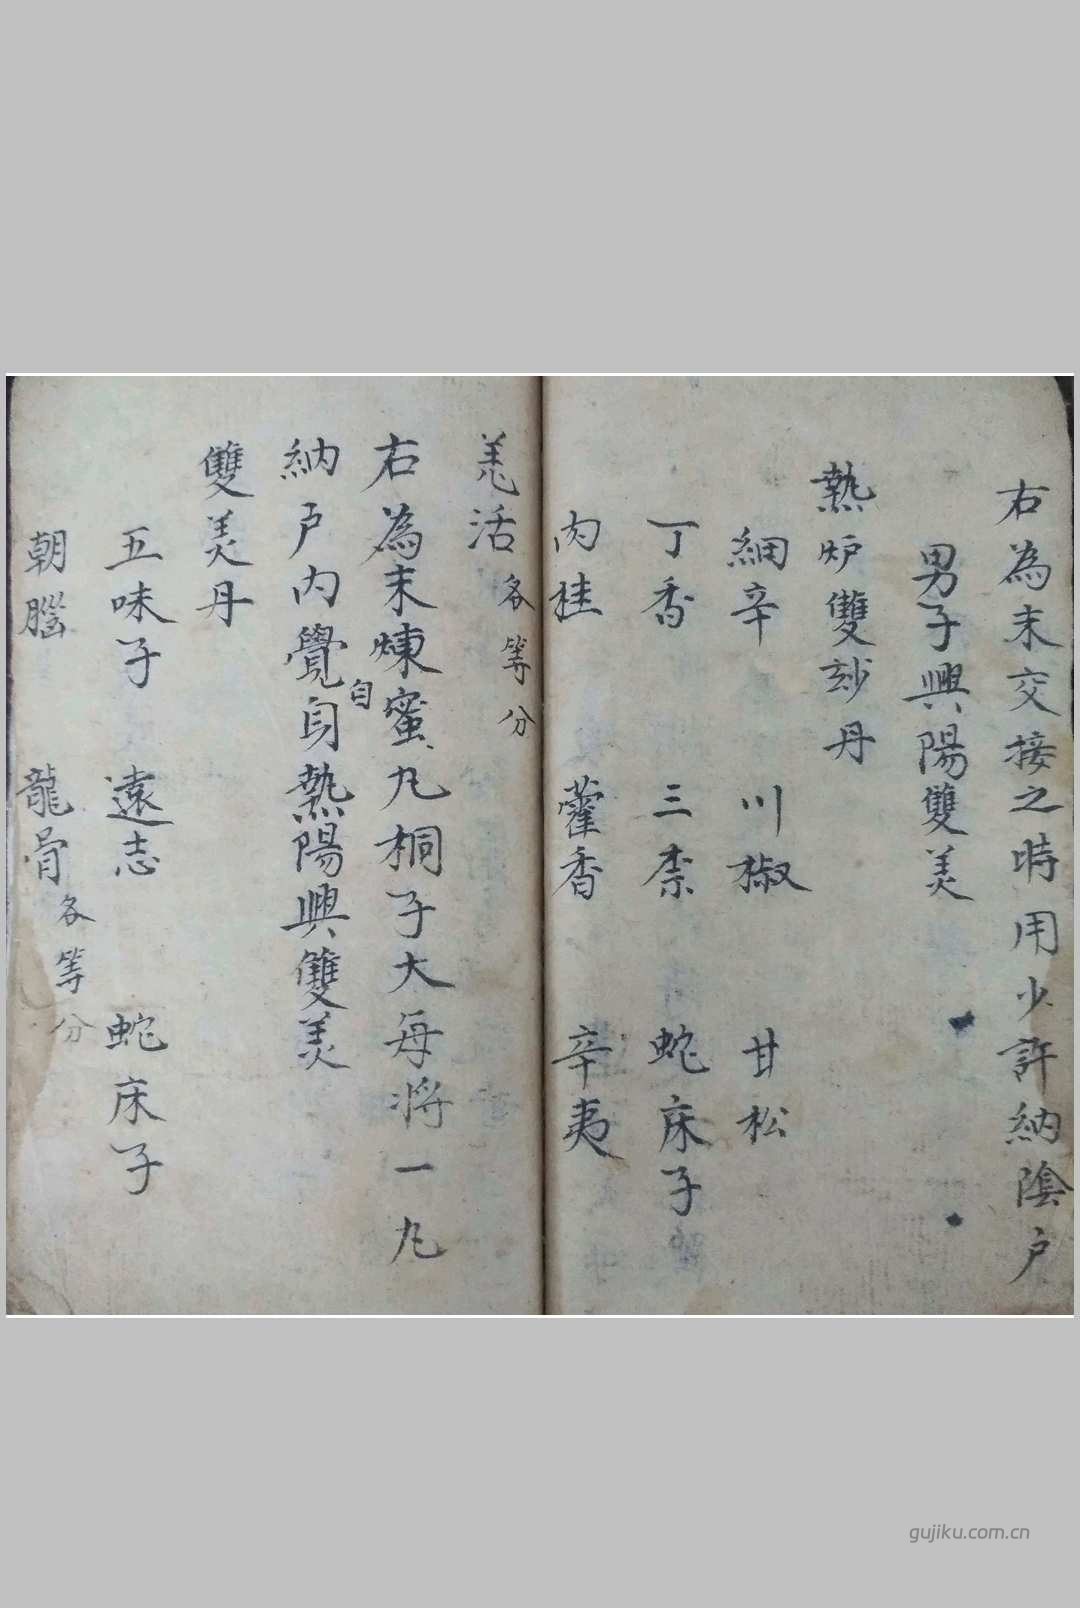 右為末交接之時用少許納陰户
男子興陽雙美
熱炉雙玅丹
細辛 川椒 甘松
丁香 三柰 蛇床子
肉桂 藿香 辛夷
羌活各等分
右為末煉蜜丸桐子大每将一丸
納户内覺自自熱陽興雙美
雙美丹
五味子 遠志 蛇床子
朝腦 龍骨各等分
gujiku.com.cn